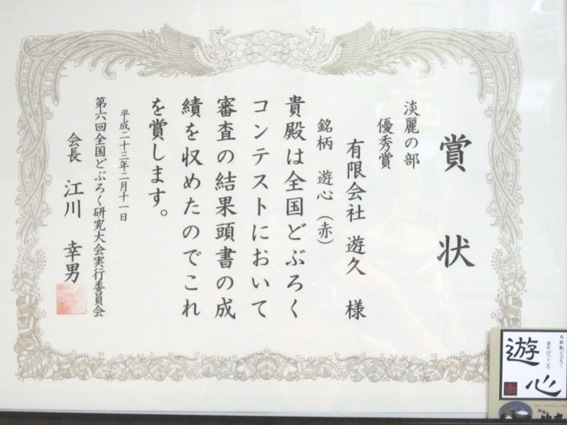 賞状
淡麗の部
優秀賞
有限会社 遊久 様
銘柄 遊心(赤)
貴殿は全国どぶろく
コンテストにおいて
審査の結果頭書の成
績を収めたのでこれ
を賞します。
平成二十三年二月十一日
第六回全国どぶろく研究大会実行委員会
会長 江川 幸男
遊心